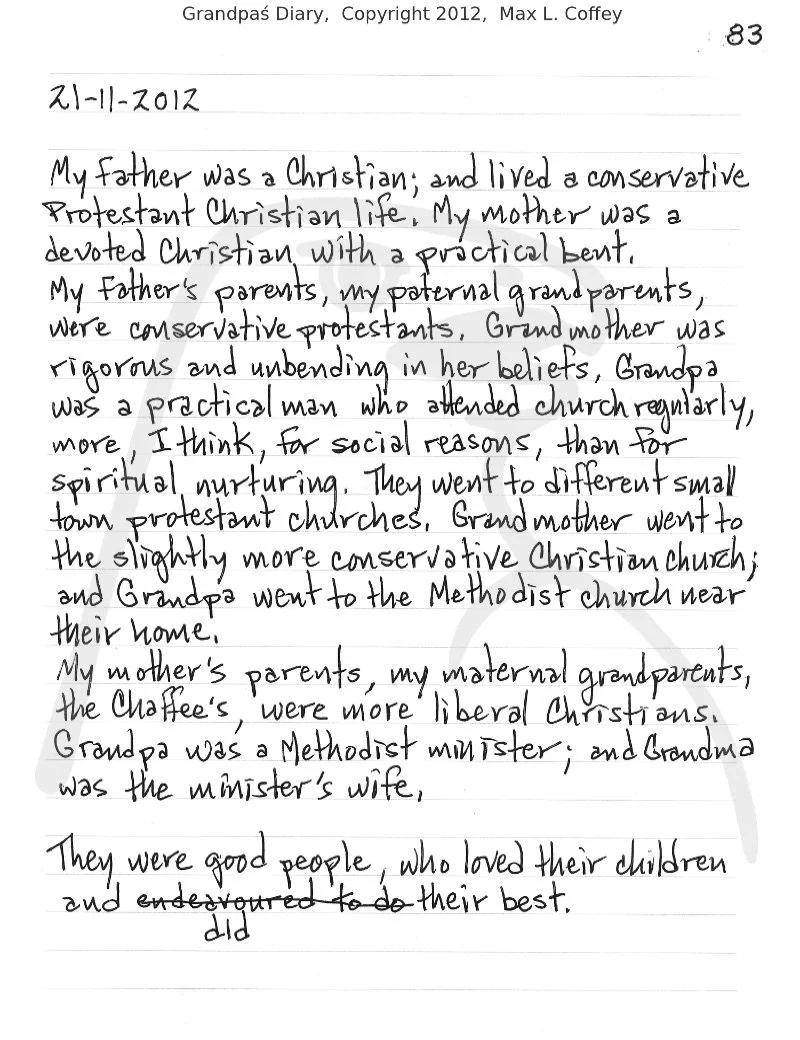 Grandpaś Diary, Copyright 2012, Max L. Coffey
83
21-11-2012
My father was a Christian; and lived a conservative
Protestant Christian life. My mother was a
devoted Christian with a practical bent.
My father's parents, my paternal grandparents,
were conservative protestants. Grandmother was
rigorous and unbending in her beliefs, Grandpa
was a practical man who attended church regularly,
more, I think, for social reasons, than for
spiritual nurturing. They went to different small
town protestant churches. Grandmother went to
the slightly more conservative Christian church;
and Grandpa went to the Methodist church near
their home.
My mother's parents, my maternal grandparents,
the Chaffee's, were more liberal Christians.
Grandpa was a Methodist minister; and Grandma
was the minister's wife,
They were good people, who loved their children
and endeavoured to do their best.
did